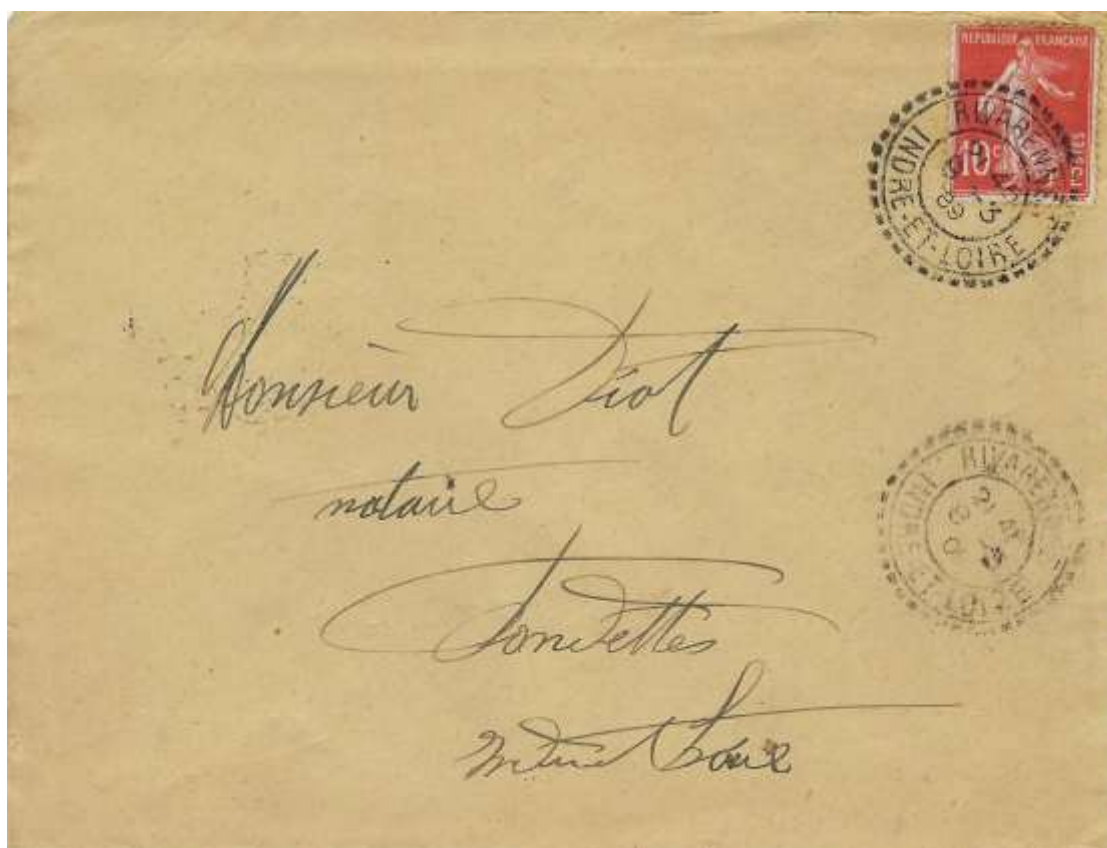 REPUBLIQUE FRANÇAISE
10c POSTES
RIVARENNES
INDRE-ET-LOIRE
Monsieur Viot
notaire
RIVARENNES
INDRE-ET-LOIRE
Fondettes
Indre et Loire